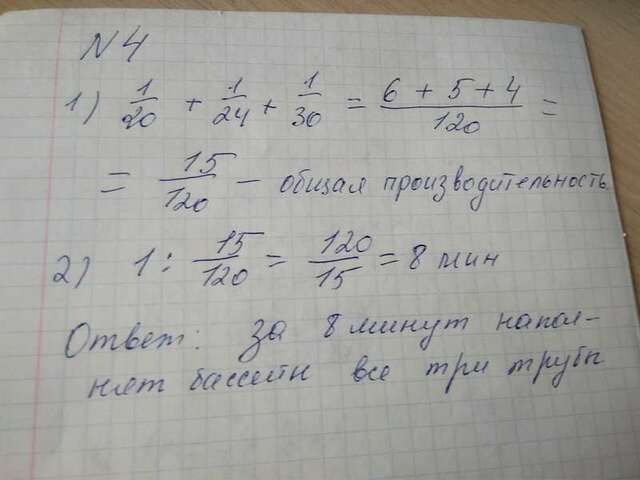 N 4
1) 1/20 + 1/24 + 1/30 = 6 + 5 + 4/120 =
= 15/120 — общая производительность
2) 1 : 15/120 = 120/15 = 8 мин
Ответ: за 8 минут напол-
няет бассейн все три трубы